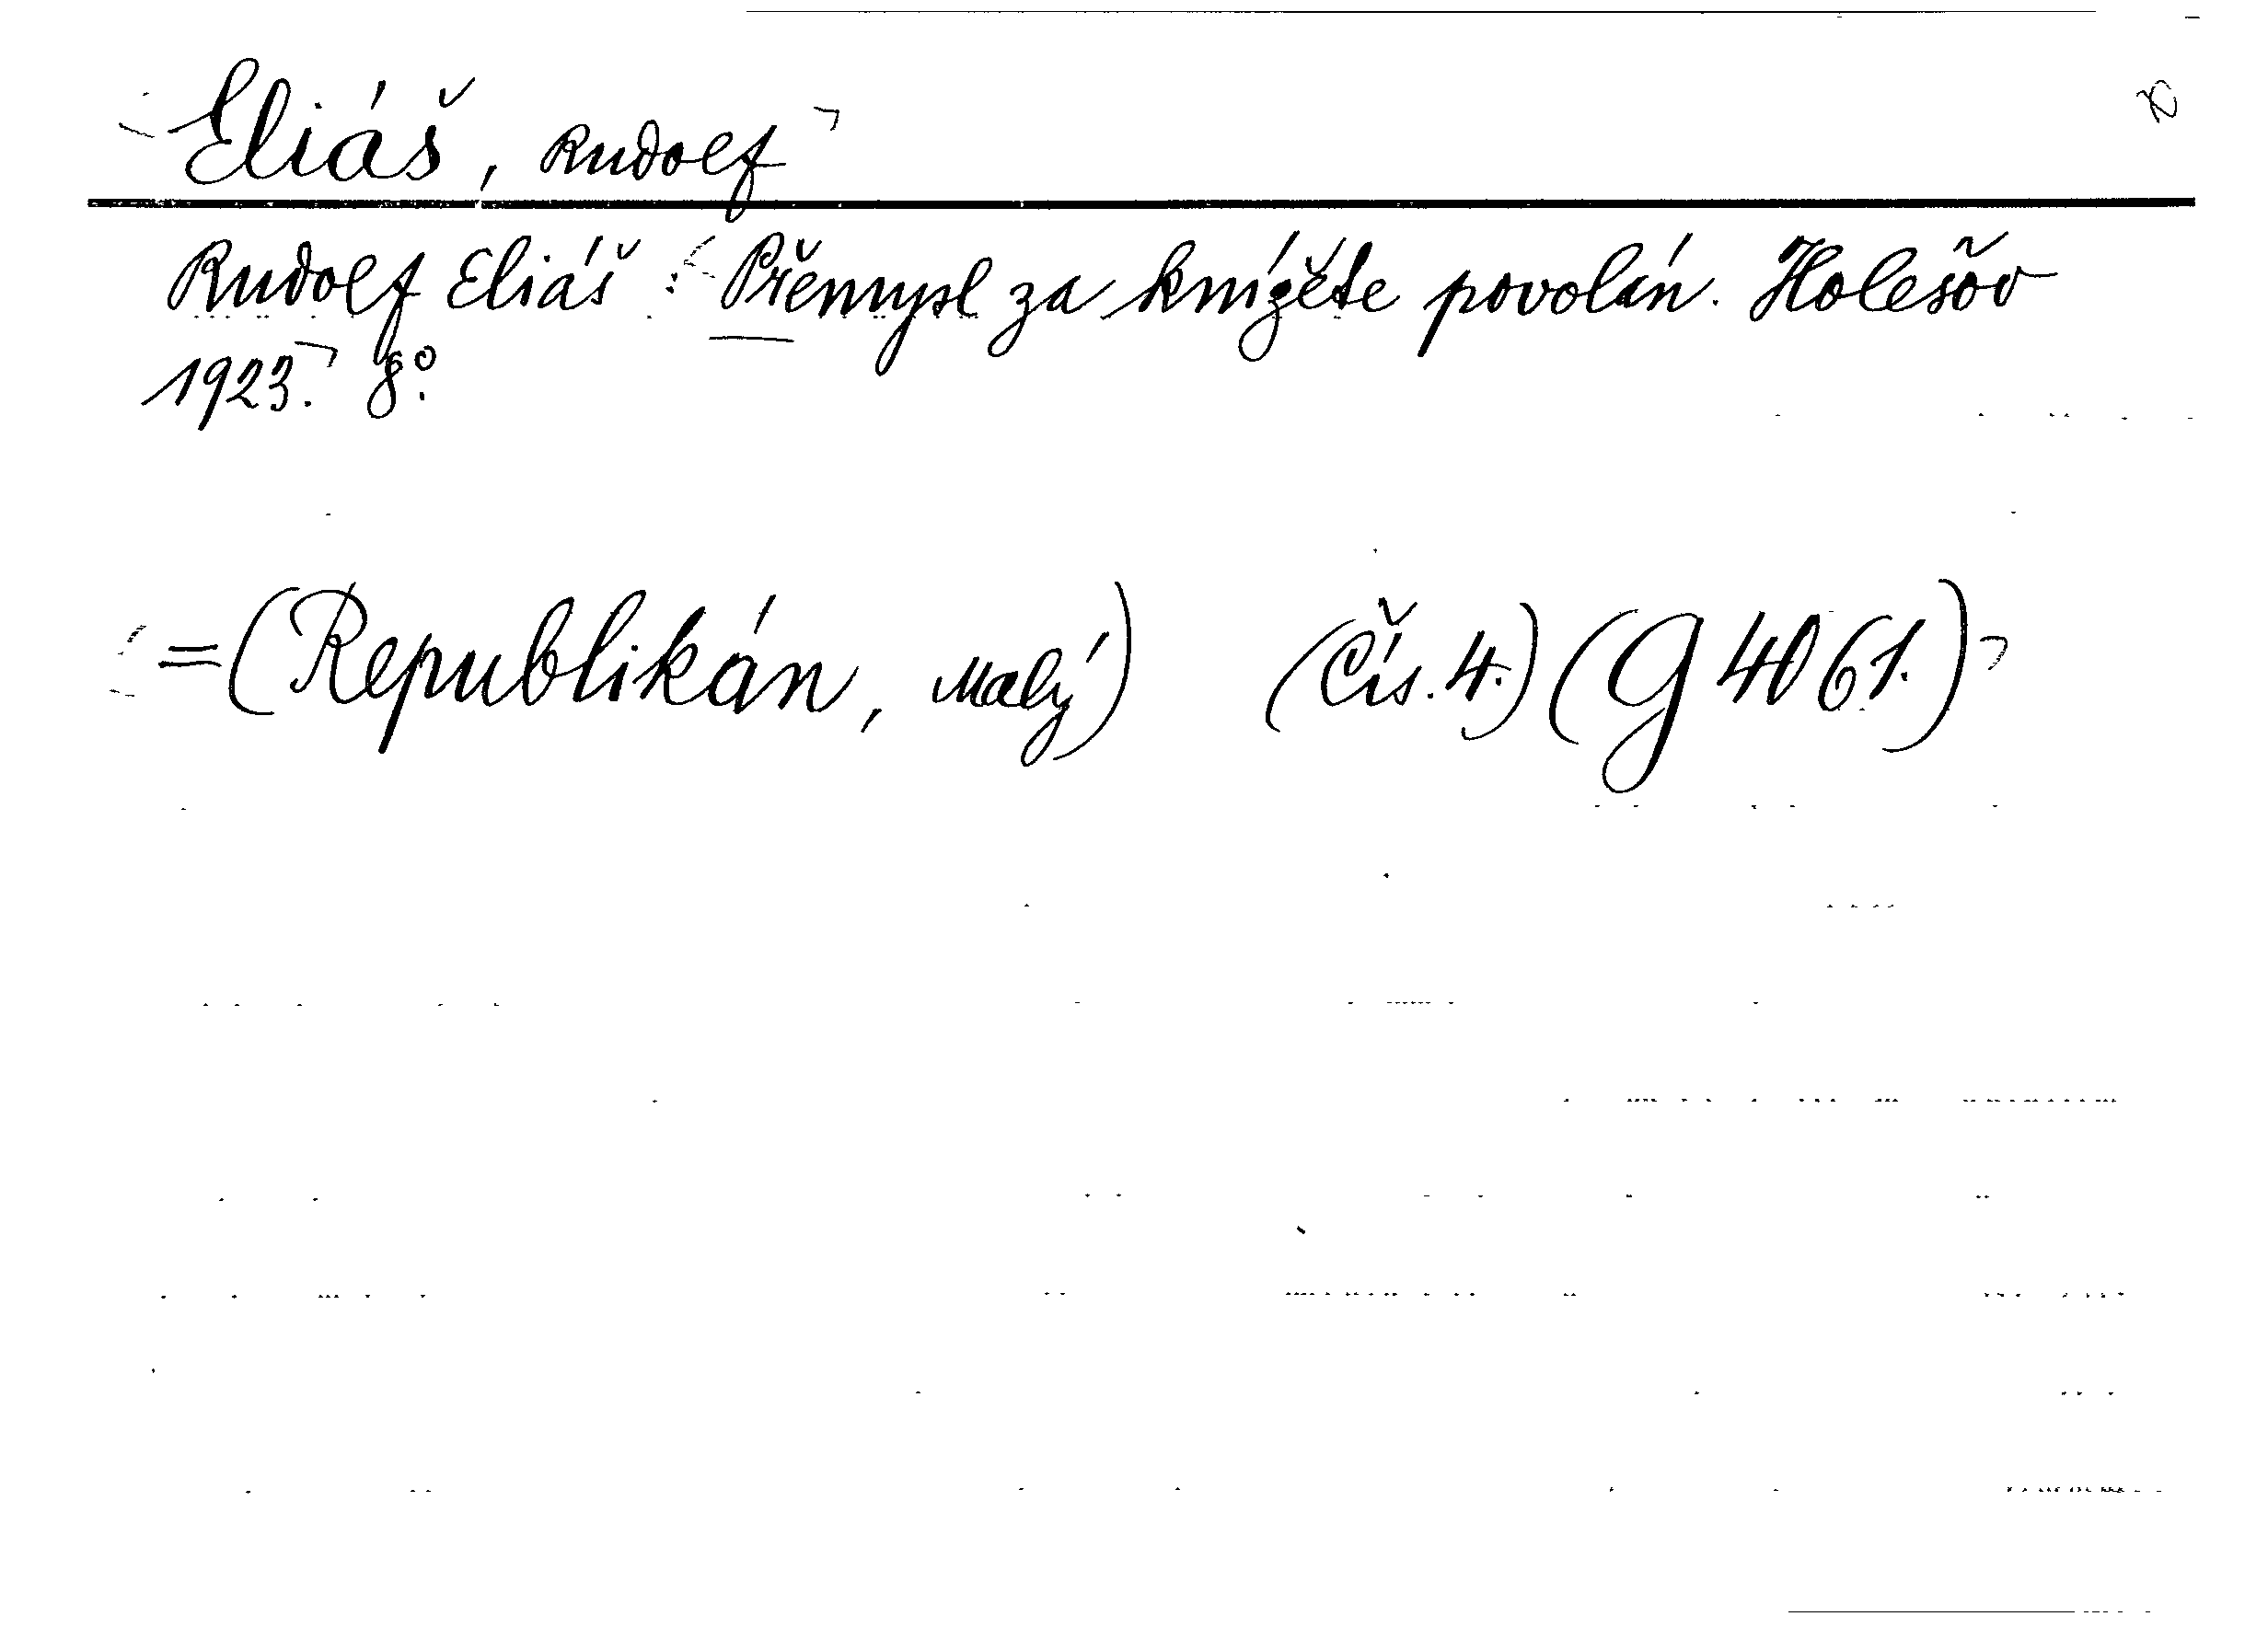 Eliáš, Rudolf
Rudolf Eliáš: Přemysl za knížete povolán. Holešov
1923. 8°.
=(Republikán, Malý) (Čís. 4.) (G 4061.)